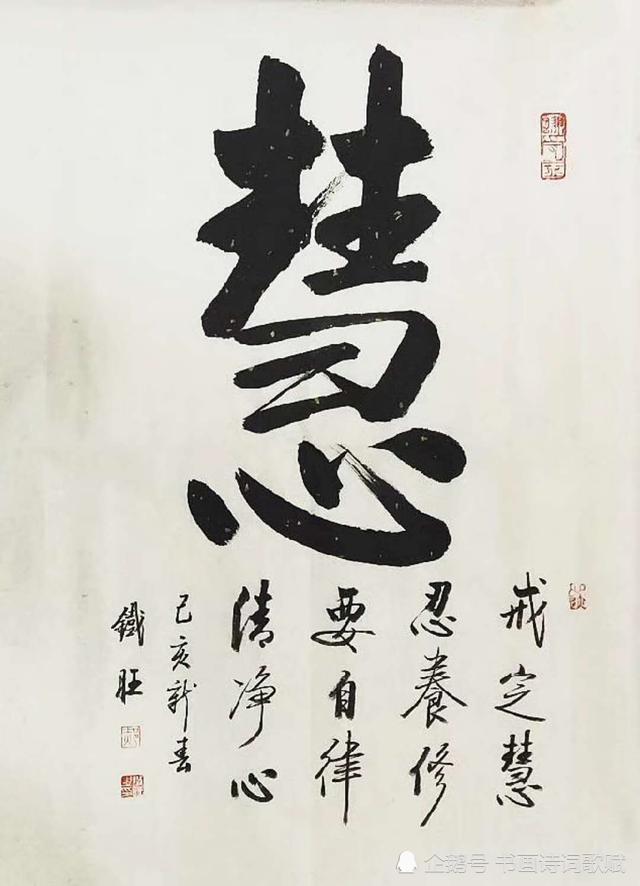 慧
戒定慧
忍養修
要自律
清净心
己亥新春
鐵旺
企鹅号 书画诗词歌赋